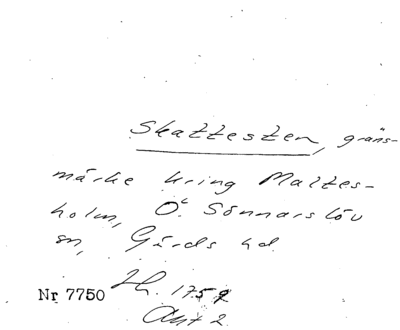 Skattesten, gräns-
märke kring Maltes-
holm, Ö. Sönnarslöv
sn, Gärds hd.
Nr 7750
Akt 2